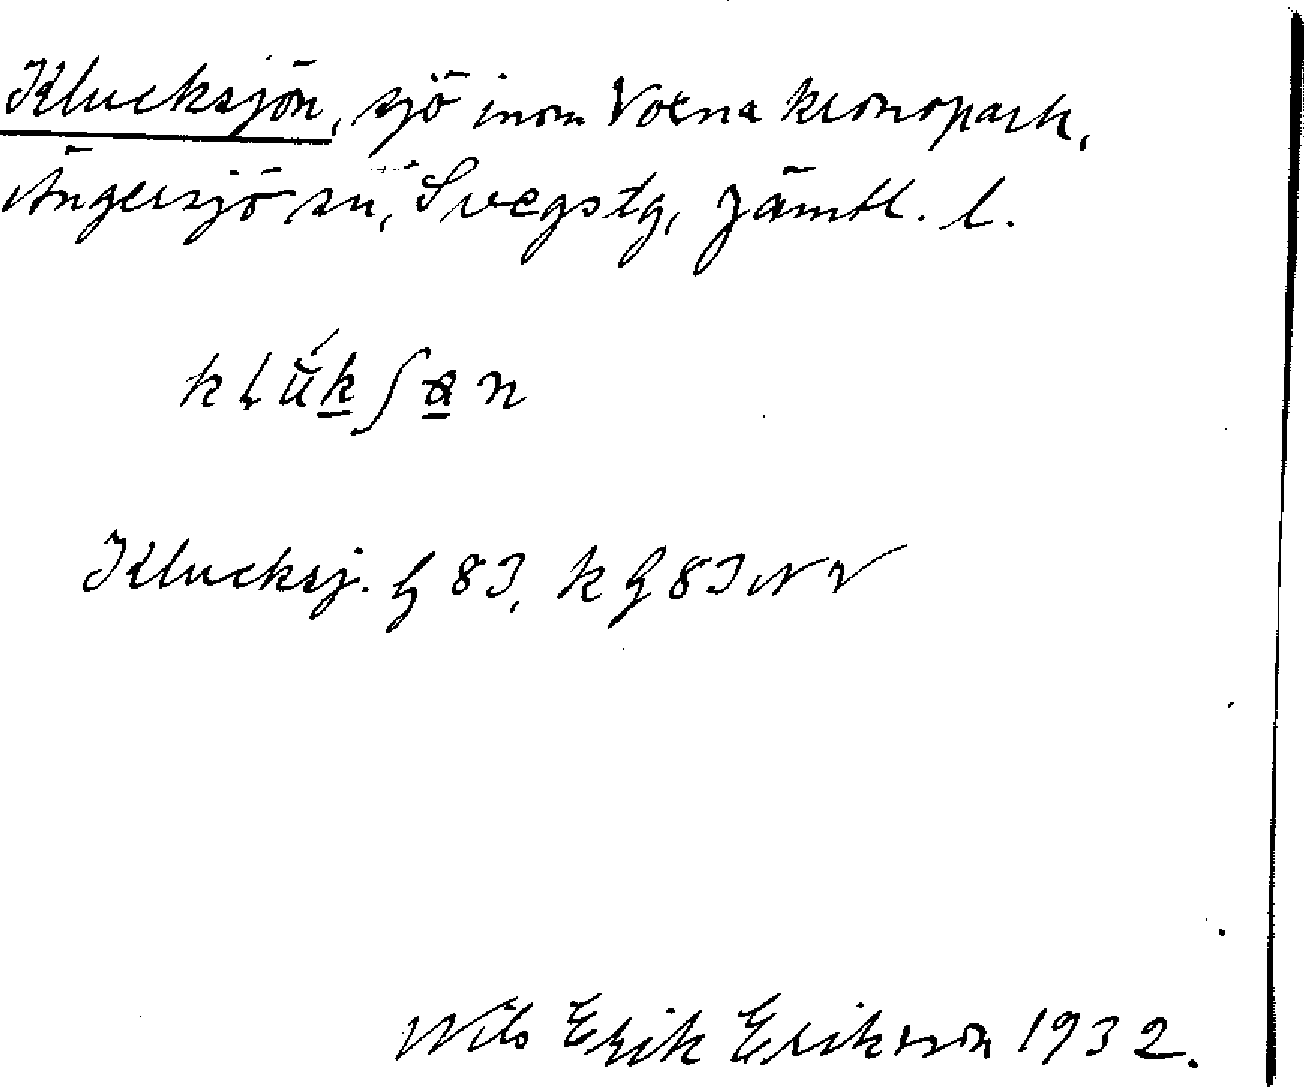 Klucksjön, sjö inom Voxna kronopark,
Ängersjö sn, Svegs tg, Jämtl. l.
klúkʃən
Klucksj. G 83, k G 83 NV
Nils Erik Eriksson 1932.